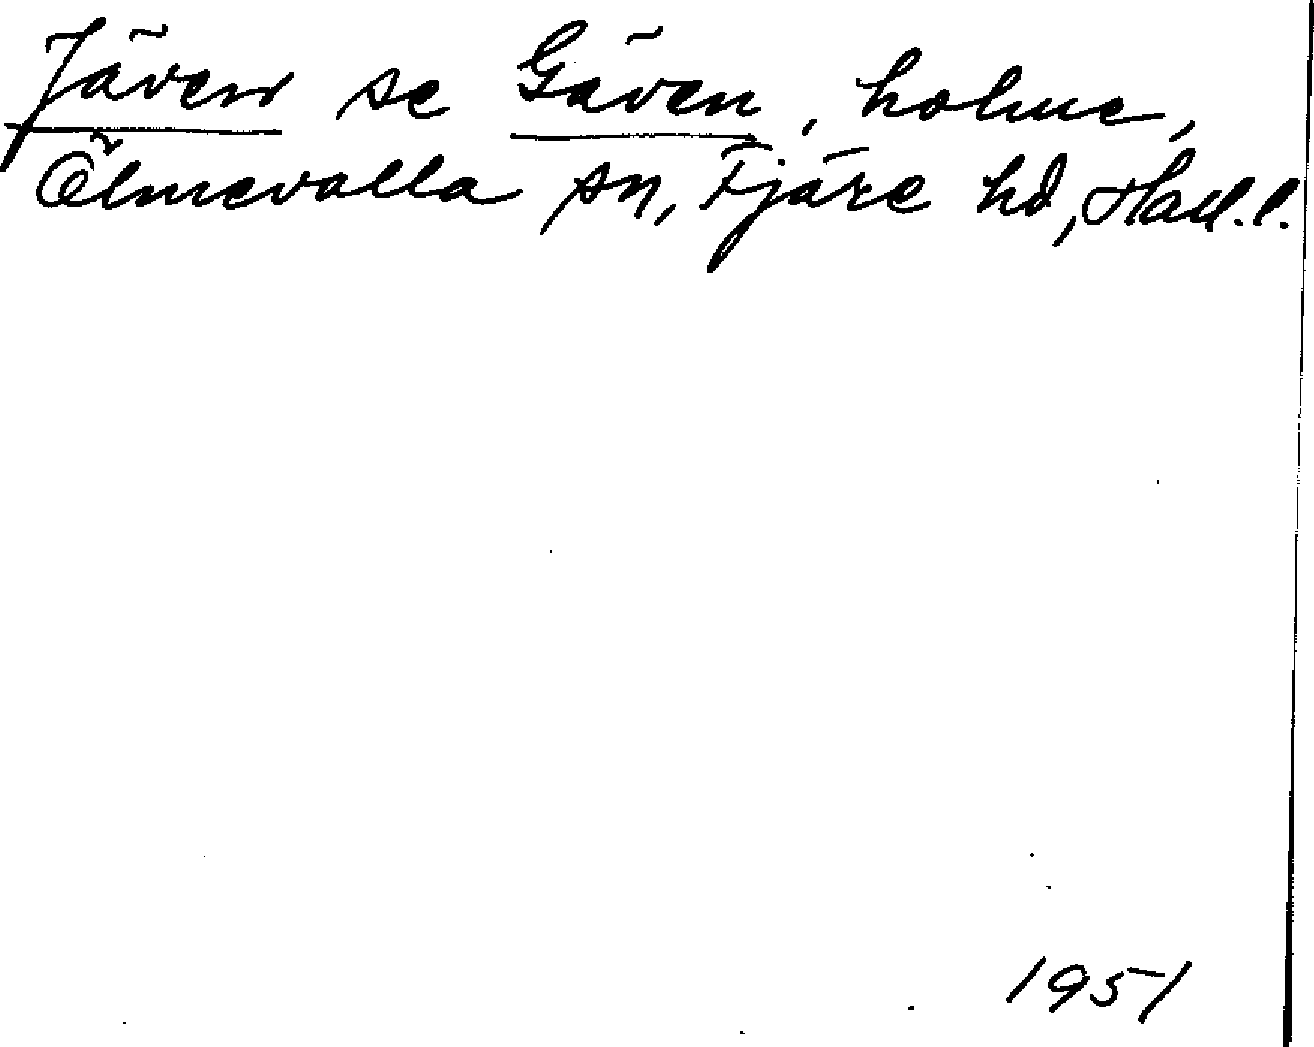 Jäven se Gäven, holme,
Ölmevalla sn, Fjäre hd, Hall. l.
1951